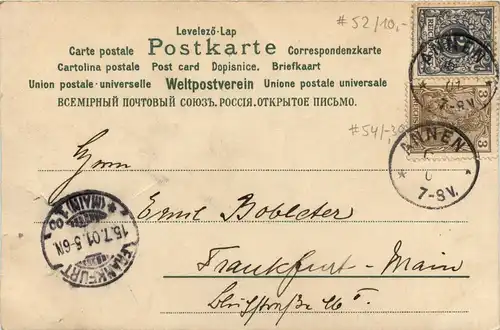 #52/10,-
Levelező-Lap
Carte postale Postkarte Correspondenzkarte
Cartolina postale Post card Dopisnice. Briefkaart
Union postale universelle Weltpostverein Unione postale universale
ВСЕМІРНЫЙ ПОЧТОВЫЙ СОЮЗЪ. РОССІЯ. ОТКРЫТОЕ ПИСЬМО.
ANNEN
7-8V.
3
3
#54/-,30
ANNEN
7-8V.
Herrn
Ernst Bobleter
Frankfurt-Main
FRANKFURT
(MAIN) 1
15.7.01.5-6N.